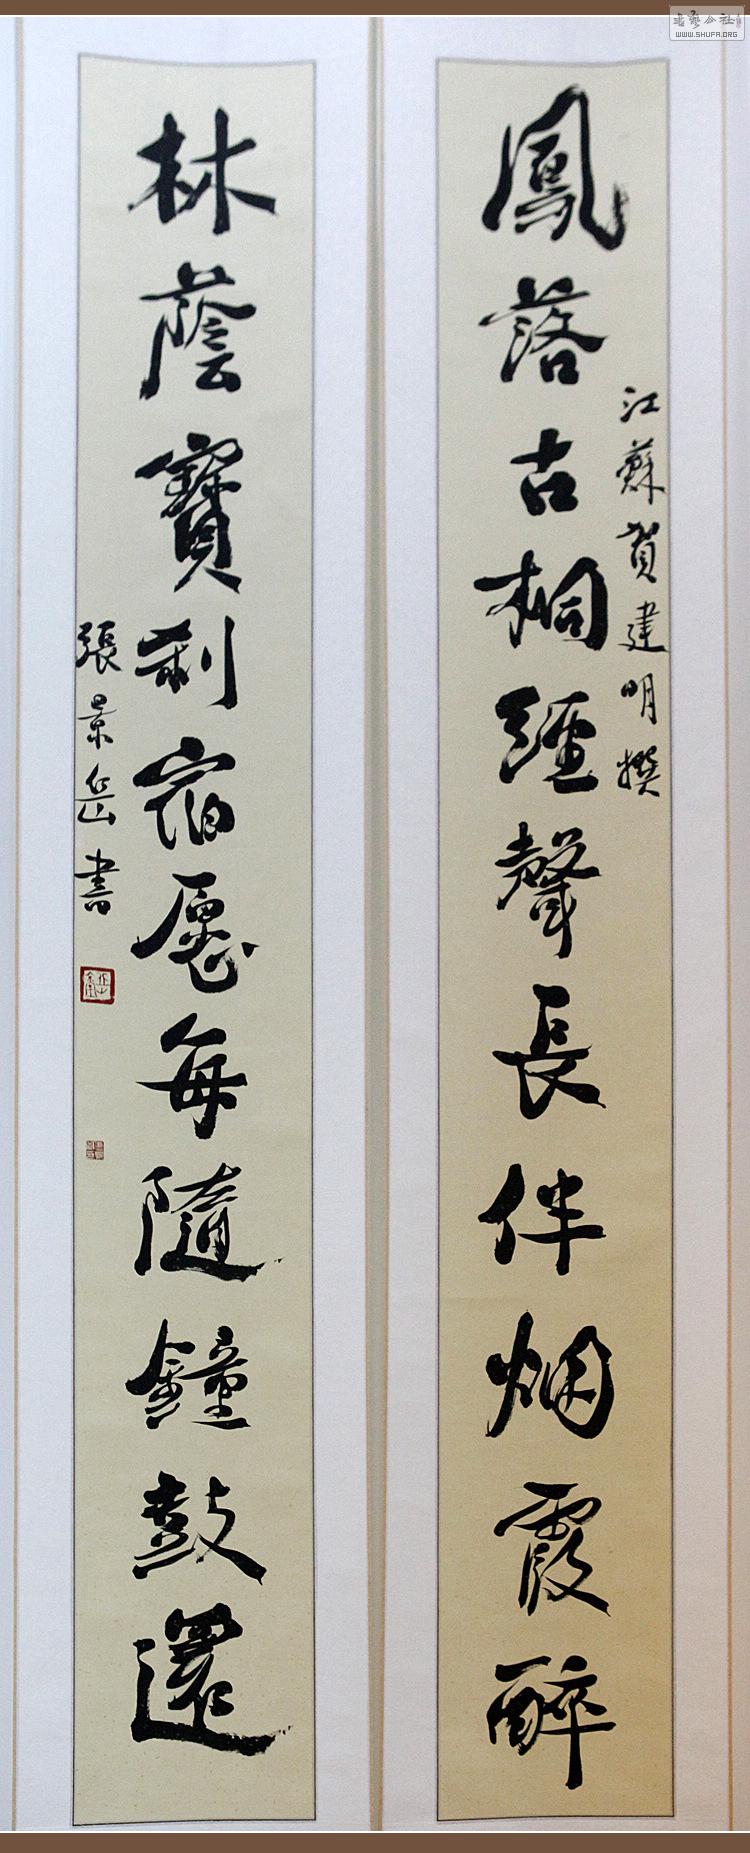 鳳落古桐經聲長伴烟霞醉
江蘇賀建明撰
林蔭寶刹宿愿每隨鐘鼓還
張景岳書
书艺公社
WWW.SHUFA.ORG